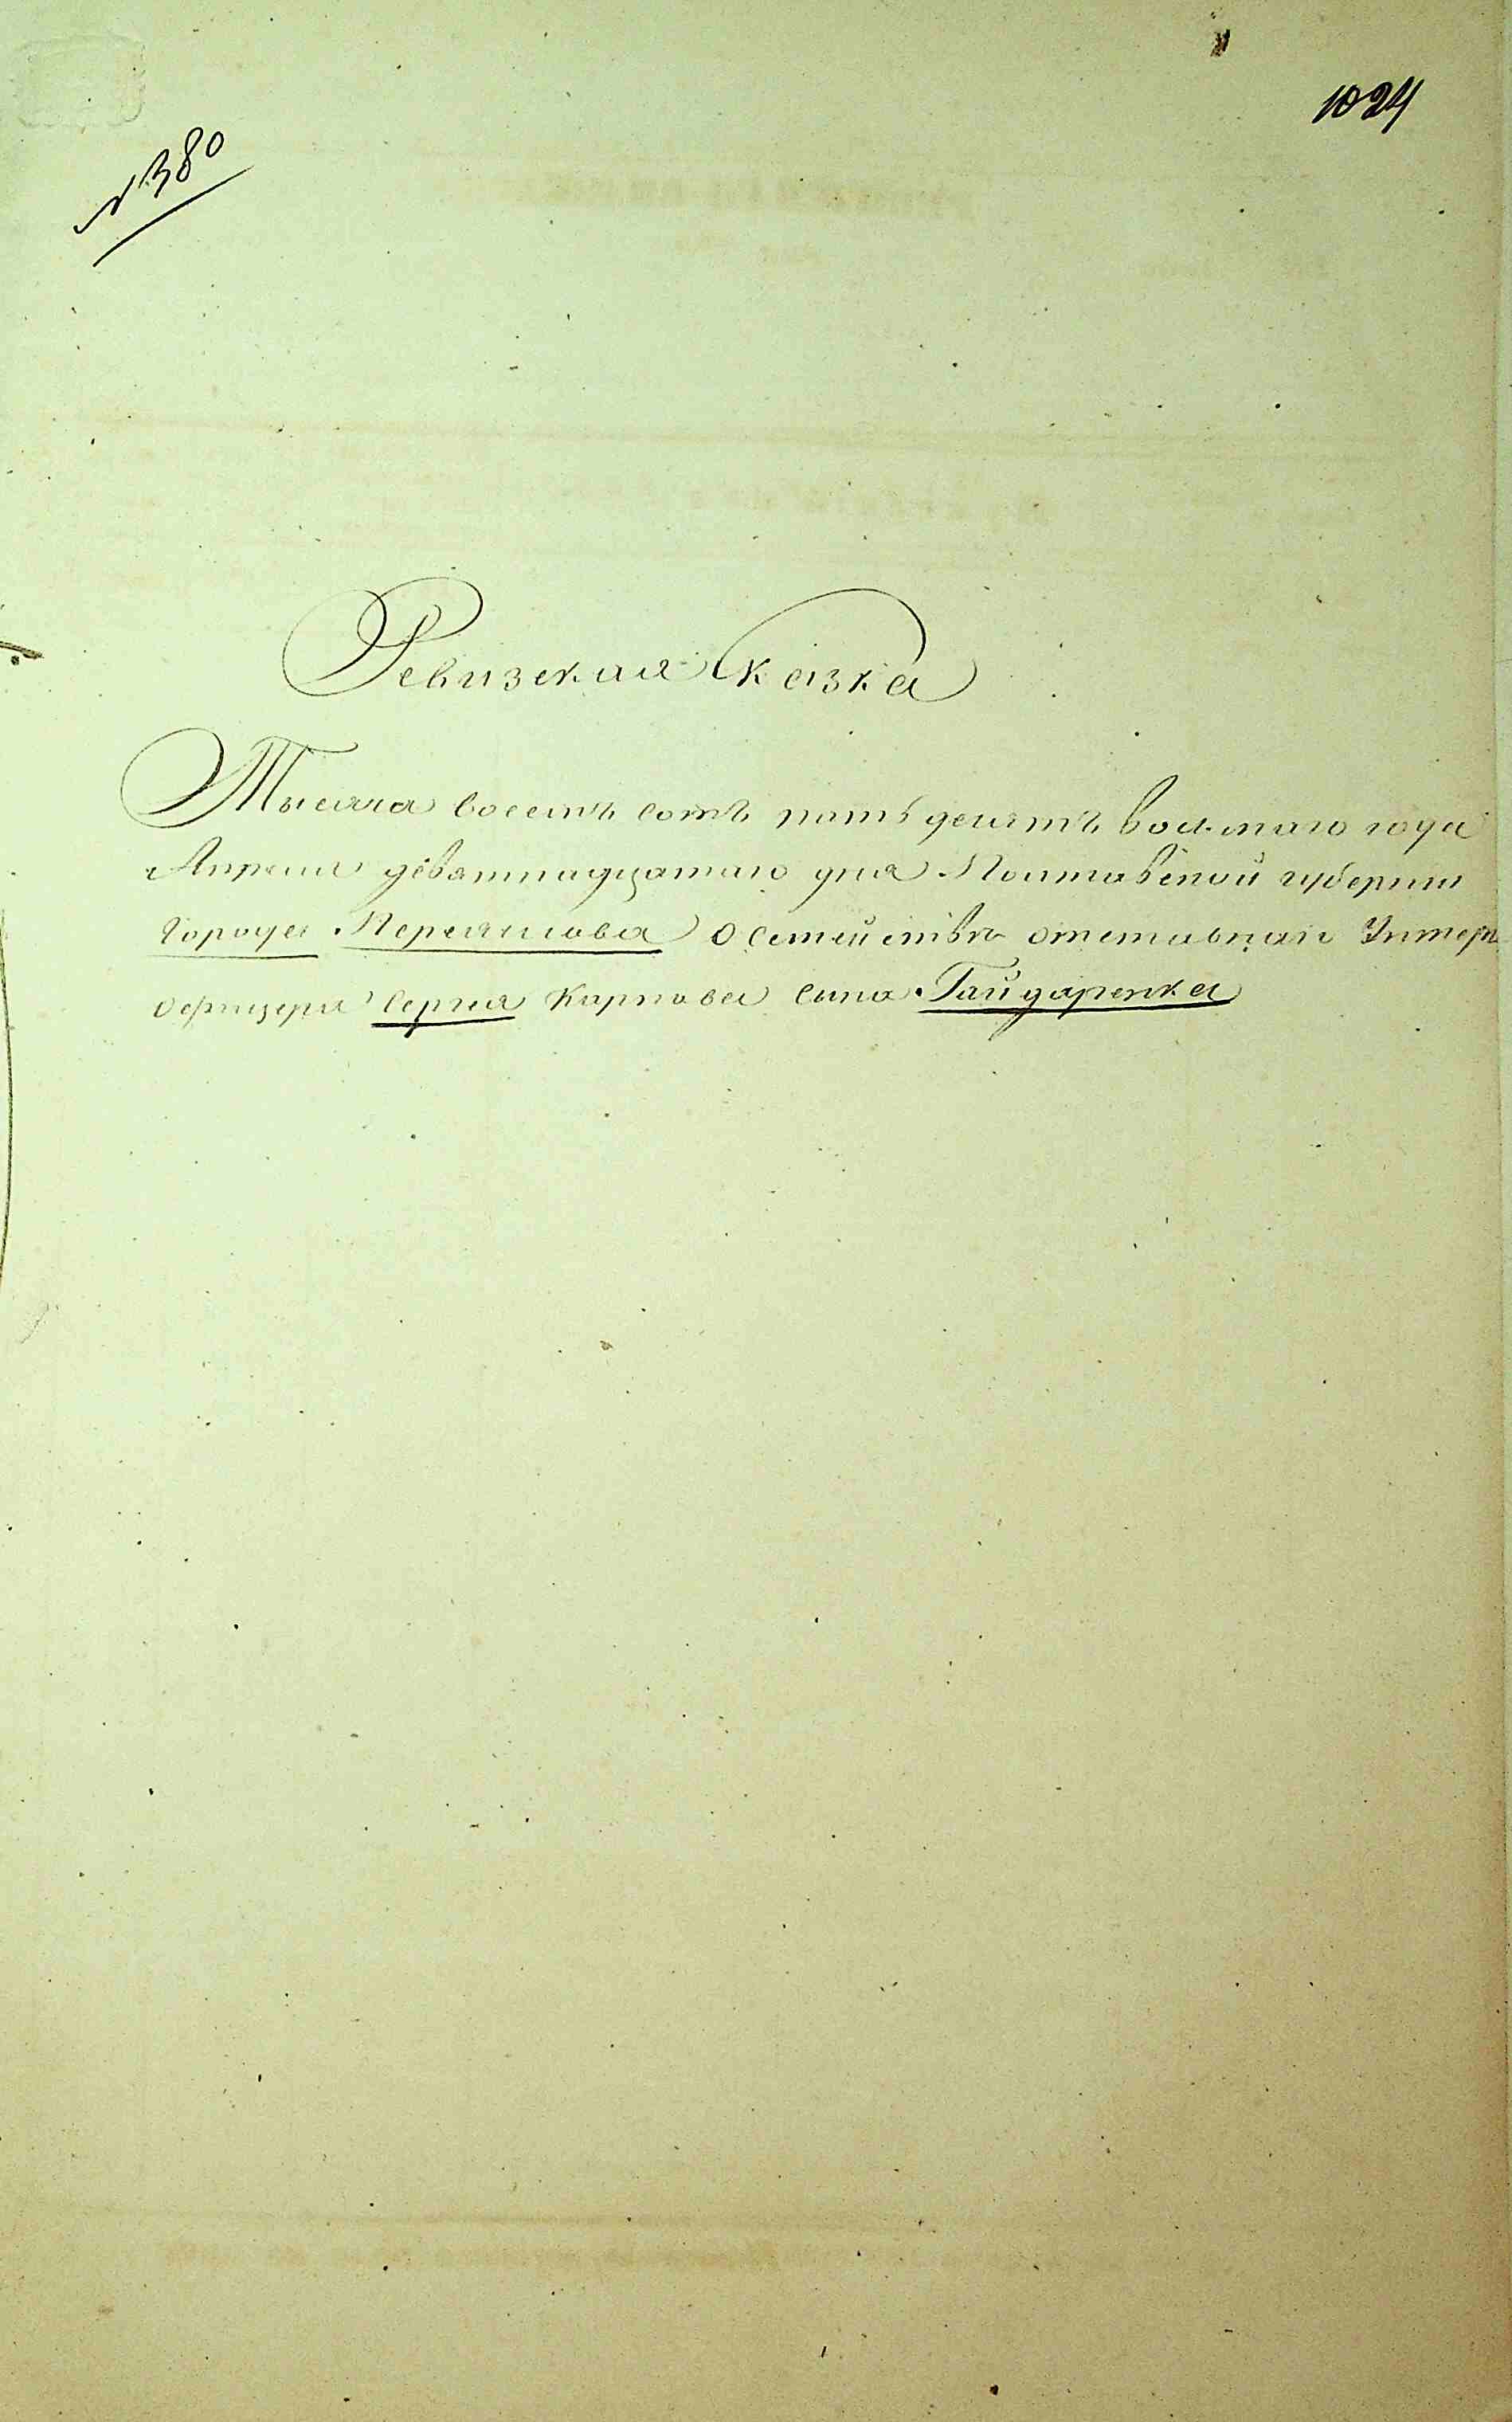 1024
№ 380
Ревизская Сказка
Тысяча восемь сотъ пятьдесятъ восьмаго года
Апреля девятнадцатаго дня Полтавской губернии
города Переяслова О семействѣ отставнаго Унтеръ
офицера Сергея Карпова сына Гайдаренка